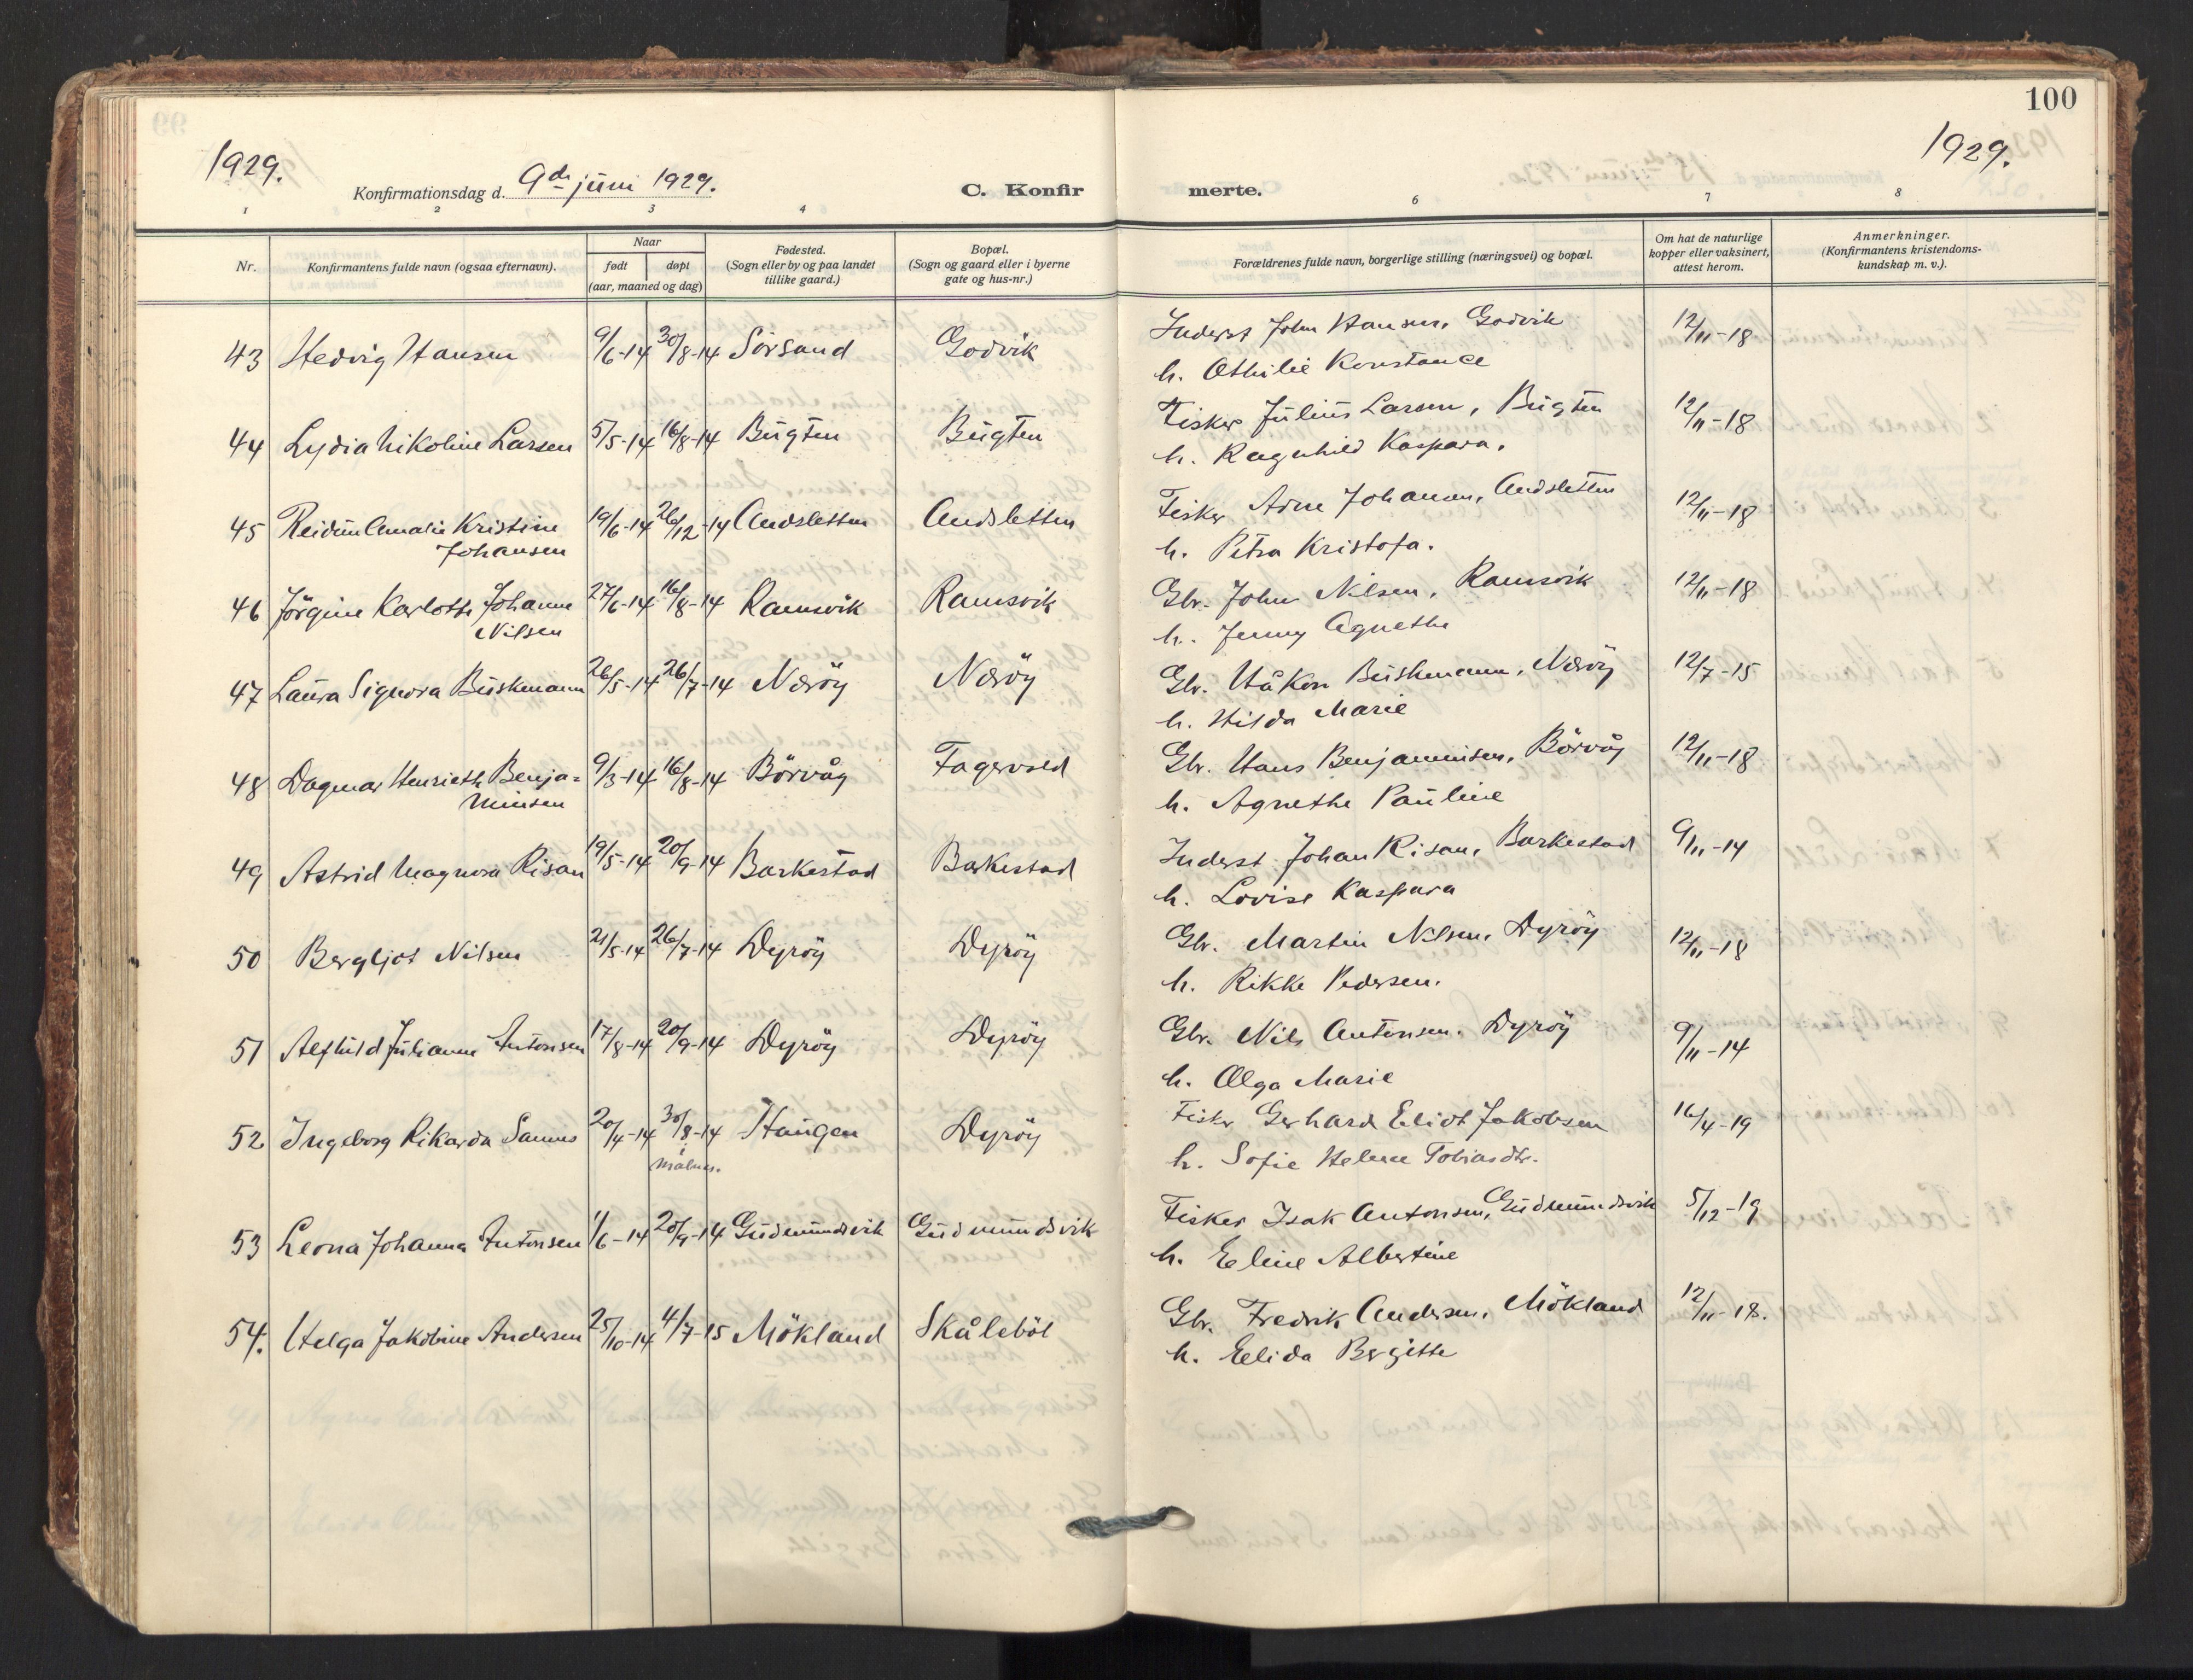 100
1929.
1929.
Konfirmationsdag d. 9de juni 1929.
C. Konfir
merte.
1 2 3 4 6 7 8
Nr.
Konfirmantens fulde navn (ogsaa efternavn).
Naar
født
døpt
(aar, maaned og dag)
Fødested.
(Sogn eller by og paa landet
tillike gaard.)
Bopæl.
(Sogn og gaard eller i byerne
gate og hus-nr.)
Forældrenes fulde navn, borgerlige stilling (næringsvei) og bopæl.
Om hat de naturlige
kopper eller vaksinert,
attest herom.
Anmerkninger.
(Konfirmantens kristendoms-
kundskap m. v.).
43 Hedvig Hansen 9/6-14 30/8-14 Sörsand Godvik Inderst John Hansen, Godvik 12/11-18
h. Othilie Konstance
44 Lydia Nikoline Larsen 5/5-14 16/8-14 Bugten Bugten Fisker Julius Larsen, Bugten 12/11-18
h. Ragnhild Kaspara.
45 Reidun Amalie Kristine 19/6-14 26/12-14 Andsletten Andsletten Fisker Arne Johansen, Andsletten 12/11-18
Johansen h. Petra Kristofa.
46 Jörgine Karlotte Johanne 27/6-14 16/8-14 Ramsvik Ramsvik Gbr. John Nilsen, Ramsvik 12/11-18
Nilsen h. Jenny Agnethe
47 Laura Signora Buskmann 26/5-14 26/7-14 Næröy Næröy Gbr. Håkon Buskmann, Næröy 12/7-15
h. Hilda Marie
48 Dagmar Henriette Benja= 9/3-14 16/8-14 Börvåg Fagervold Gbr. Hans Benjaminsen, Börvåg 12/11-18
minsen h. Agnethe Pauline
49 Astrid Magnora Risan 19/5-14 20/9-14 Barkestad Barkestad Inderst Johan Risan, Barkestad 9/11-14
h. Lovise Kaspara
50 Bergljot Nilsen 21/5-14 26/7-14 Dyröy Dyröy Gbr. Martin Nilsen, Dyröy 12/11-18
h. Rikke Pedersen.
51 Alfhild Julianne Antonsen 17/8-14 20/9-14 Dyröy Dyröy Gbr. Nils Antonsen. Dyröy 9/11-14
h. Olga Marie
52 Ingeborg Rikarda Sannes 20/4-14 30/8-14 Haugen Dyröy Fisker Gerhard Eliot Jakobsen 16/4-19
Målnes. h. Sofie Helene Tobiasdtr.
53 Leona Johanna Antonsen 1/6-14 20/9-14 Gudmundsvik Gudmundsvik Fisker Isak Antonsen, Gudmundsvik 5/12-19
h. Eline Albertine
54. Helga Jakobine Andersen 25/10-14 4/7-15 Mökland Skåleböl Gbr. Fredrik Andersen, Mökland 12/11-18.
h. Elida Bergitte